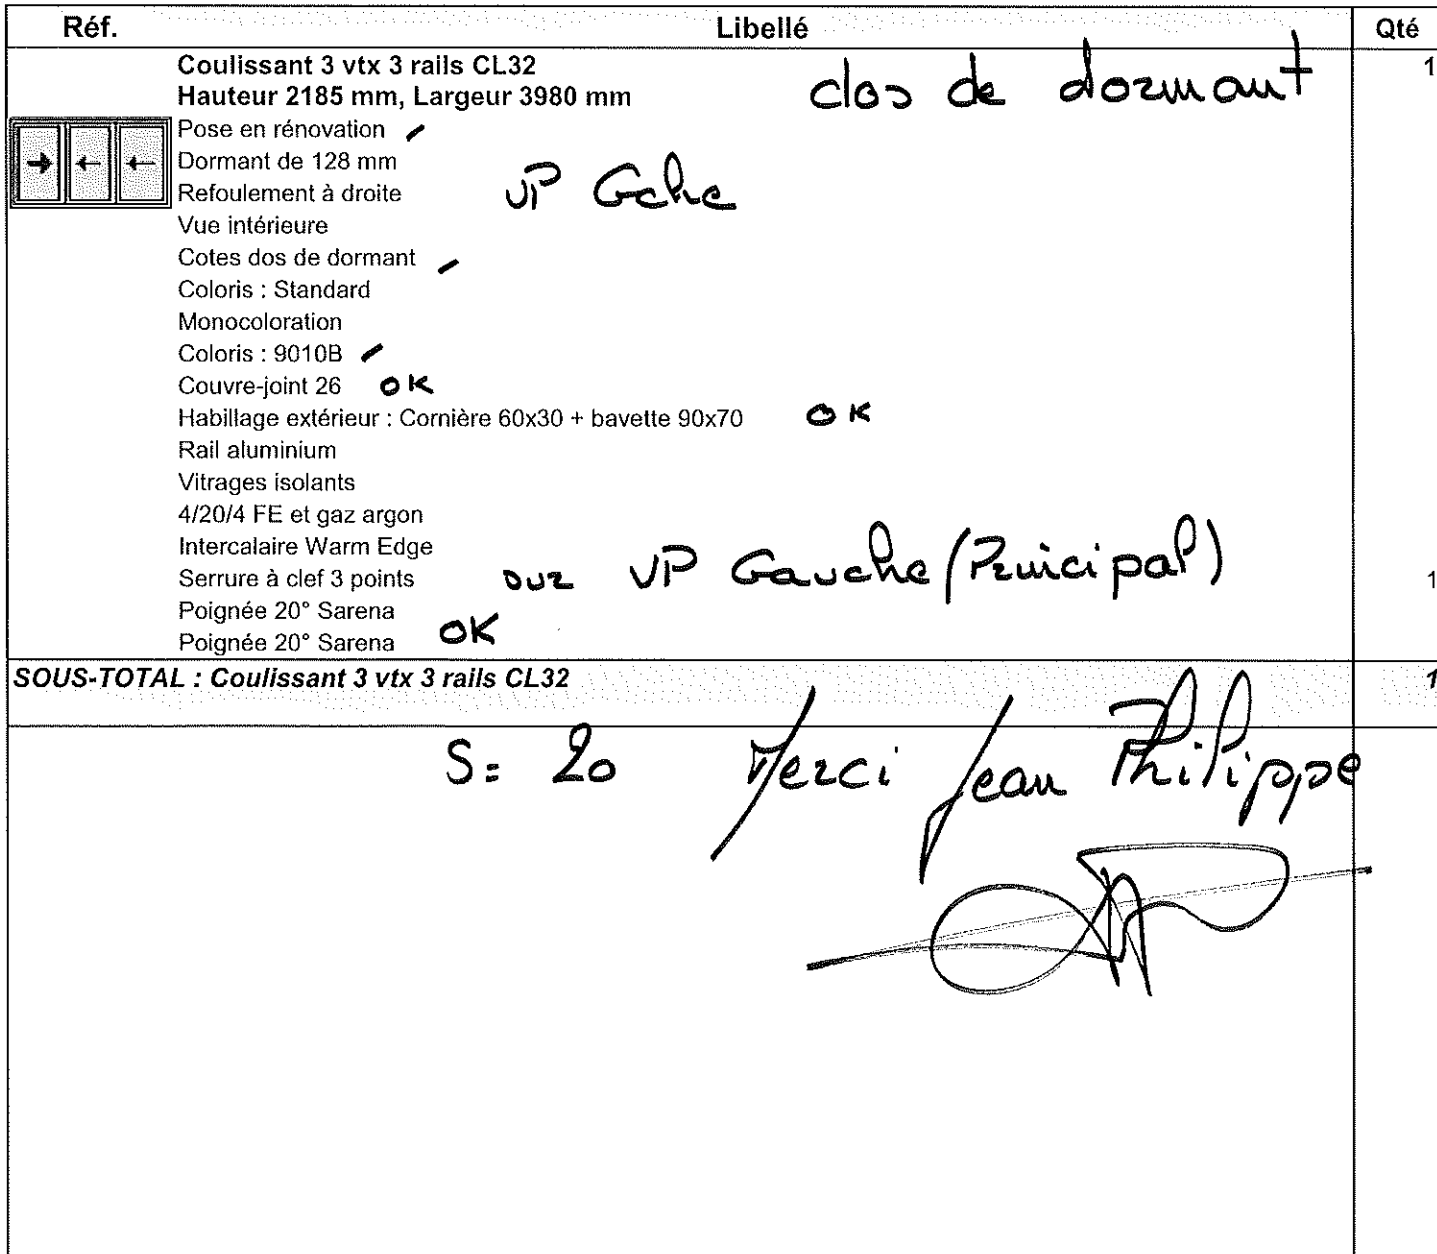 Réf. Libellé Qté
Coulissant 3 vtx 3 rails CL32 1
Hauteur 2185 mm, Largeur 3980 mm dos de dormant
Pose en rénovation
Dormant de 128 mm
Refoulement à droite VP Gche
Vue intérieure
Cotes dos de dormant
Coloris : Standard
Monocoloration
Coloris : 9010B
Couvre-joint 26 OK
Habillage extérieur : Cornière 60x30 + bavette 90x70 OK
Rail aluminium
Vitrages isolants
4/20/4 FE et gaz argon
Intercalaire Warm Edge
Serrure à clef 3 points sur VP Gauche (Principal) 1
Poignée 20° Sarena
Poignée 20° Sarena OK
SOUS-TOTAL : Coulissant 3 vtx 3 rails CL32 1
S = 20 Merci Jean Philippe